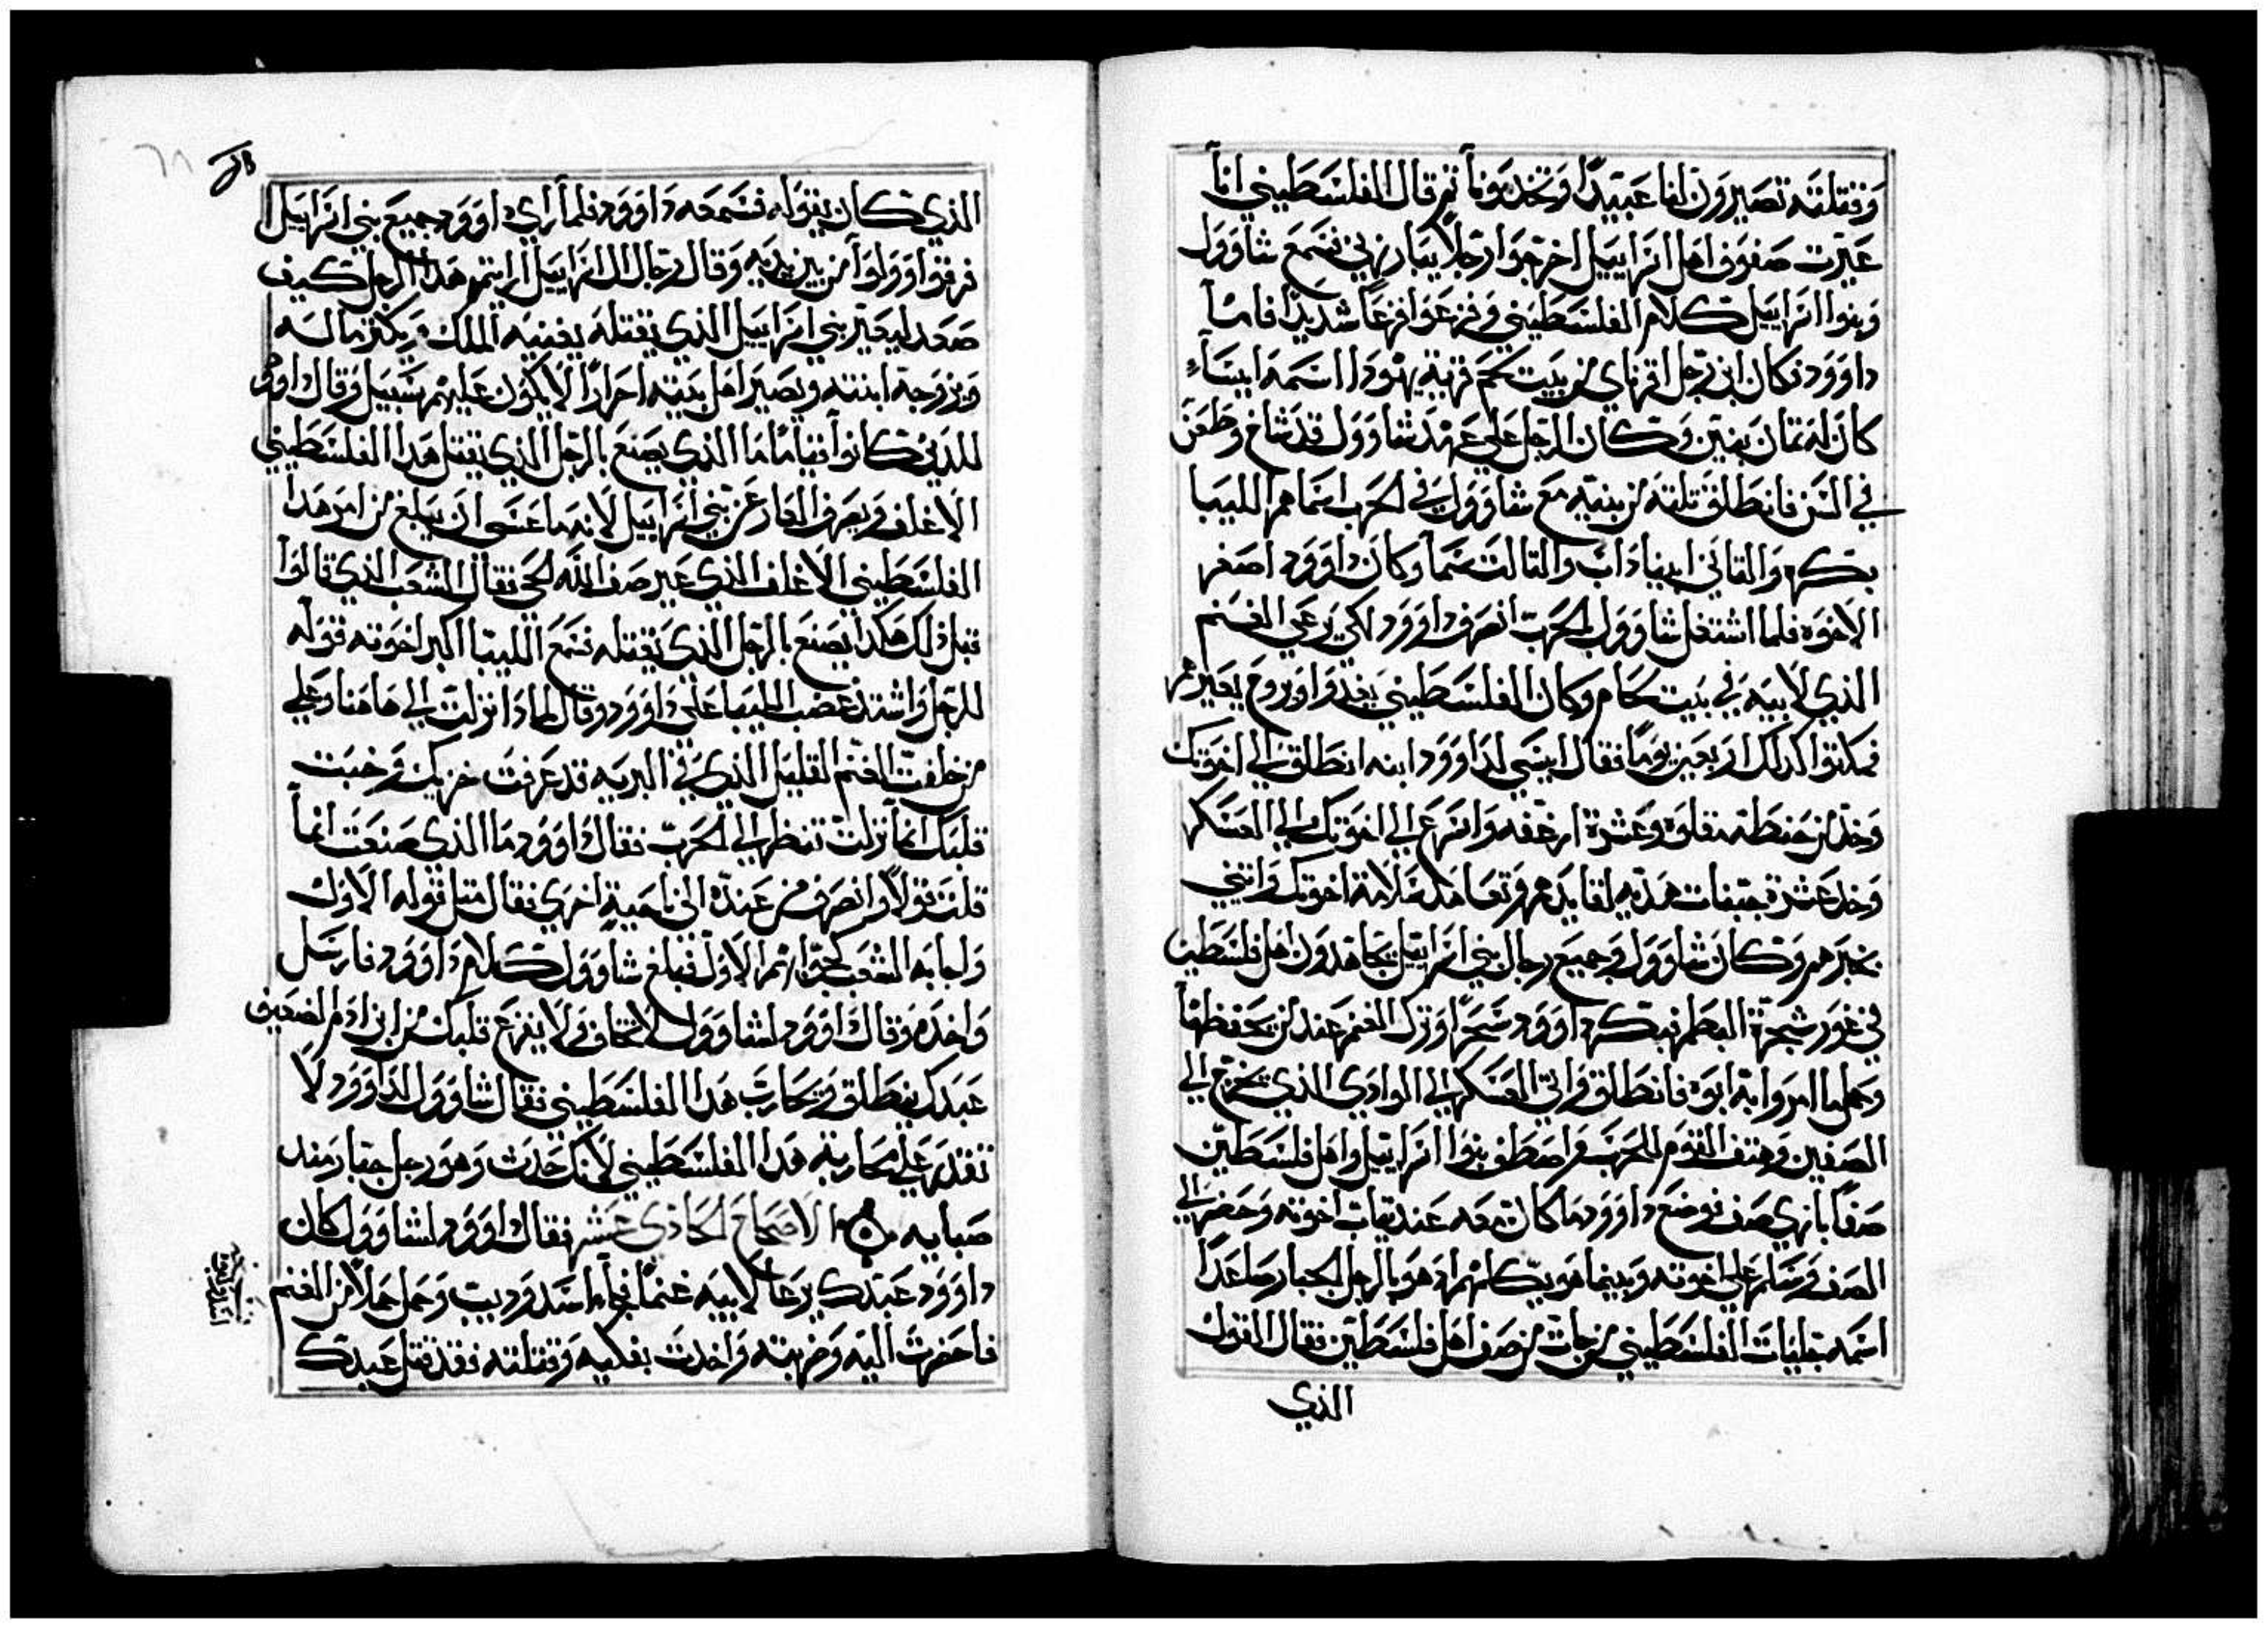 وقتلته تصيرون لنا عبيدًا وتخدمونا ثم قال الفلسطيني انا
عيرت صفوف اهل اسراييل اخرجوا رجلا يبارزني فسمع شاوول
وبنوا اسراييل كلام الفلسطيني وفزعوا فزعًا شديدًا فاما
داوود فكان ابن رجل افرتاي من بيت لحم قرية يهودا اسمه ايساء
كان له تمان بنين وكان الرجل على عهد شاوول قد شاخ وطعن
في السن فانطلق تلته من بنيه مع شاوول في الحرب اسماهم اللييبا
بكره والتاني ابيناداب والتالت سما وكان داوود اصغر
الاخوه فلما اشتغل شاوول بالحرب انصرف داوود لكي يرعى الغنم
الذي لابيه في بيت لحام وكان الفلسطيني يغدوا ويروح يعيرهم
فمكتوا كدلك اربعين يومًا فقال ايسى لداوود ابنه انطلق الى اخوتك
وخد من حنطة مقلوه وعشرة ارغفه واسرع الى اخوتك الى العسكر
وخد عشرة جبنات هديه لقايدهم وتعاهد سلامة اخوتك واتيني
بخبرهم وكان شاوول وجميع رجال بني اسراييل يجاهدون اهل فلسطين
في غور شجرة البطم فبكر داوود سحرًا وترك الغنم عند من يحفظها
وحمل ما امر وابه ابوه فانطلق واتى العسكر الى الوادي الذي يخرج الى
الصفين وهتف القوم للحرب واصطف بنوا اسراييل واهل فلسطين
صفًا بازي صف فوضع داوود ما كان معه عند تياب اخوته وحضر الى
الصف وسلم على اخوته وبينما هو يكلمهم اد هو بالرجل الجبار صاعدًا
اسمه جليات الفلسطيني من جات من صف اهل فلسطين فقال القول
الذي
الذي كان يقوله فسمعه داوود فلما راي داوود جميع بني اسراييل
فرقوا وولوا من بين يديه وقال رجال ال اسراييل ارايتم هدا الرجل كيف
صعد ليعير بني اسراييل الذي يقتله يغنيه الملك ويكتر ماله
ويزوجه ابنته ويصير اهل بيته احرارًا لا يكون عليهم سبيل وقال داوود
للدين كانوا قيامًا ما الذي يصنع بالرجل الذي يقتل هدا الفلسطيني
الاغلف ويصرف العار عن بني اسراييل لانه ما عسى ان يبلغ من امر هدا
الفلسطيني الاغلف الذي عير صف الله الحي فقال الشعب الذي قالوا
قبل دلك هكدا يصنع بالرجل الذي يقتله فسمع اللييبا اكبر اخوته قوله
للرجل واشتد غضب اللييبا على داوود وقال لمادا نزلت الى هاهنا وعلى
من خلفت الغنم القليل الذي في البريه قد عرفت خزيك وخبت
قلبك انما نزلت تنظر الى الحرب فقال داوود ما الذي صنعت انما
قلت قولًا وانصرف من عنده الى ناحية اخرى فقال متل قوله الاول
واجابه الشعب كجوابهم الاول فبلغ شاوول كلام داوود فارسل
واخده وقال داوود لشاوول لا تخاف ولا ينزع قلبك من ابن ادم الضعيف
عبدك ينطلق ويحارب هدا الفلسطيني فقال شاوول لداوود لا
تقدر على محاربة هدا الفلسطيني لانك حدث وهو رجل جبار مند
صبايه الاصحاح الحادي عشر فقال داوود لشاوول كان
داوود عبدك يرعا لابيه غنمًا فجاء اسد وديب وحمل حملًا من الغنم
فاحضرت اليه وضربته واخدت بفكيه وقتلته فقد قتل عبدك